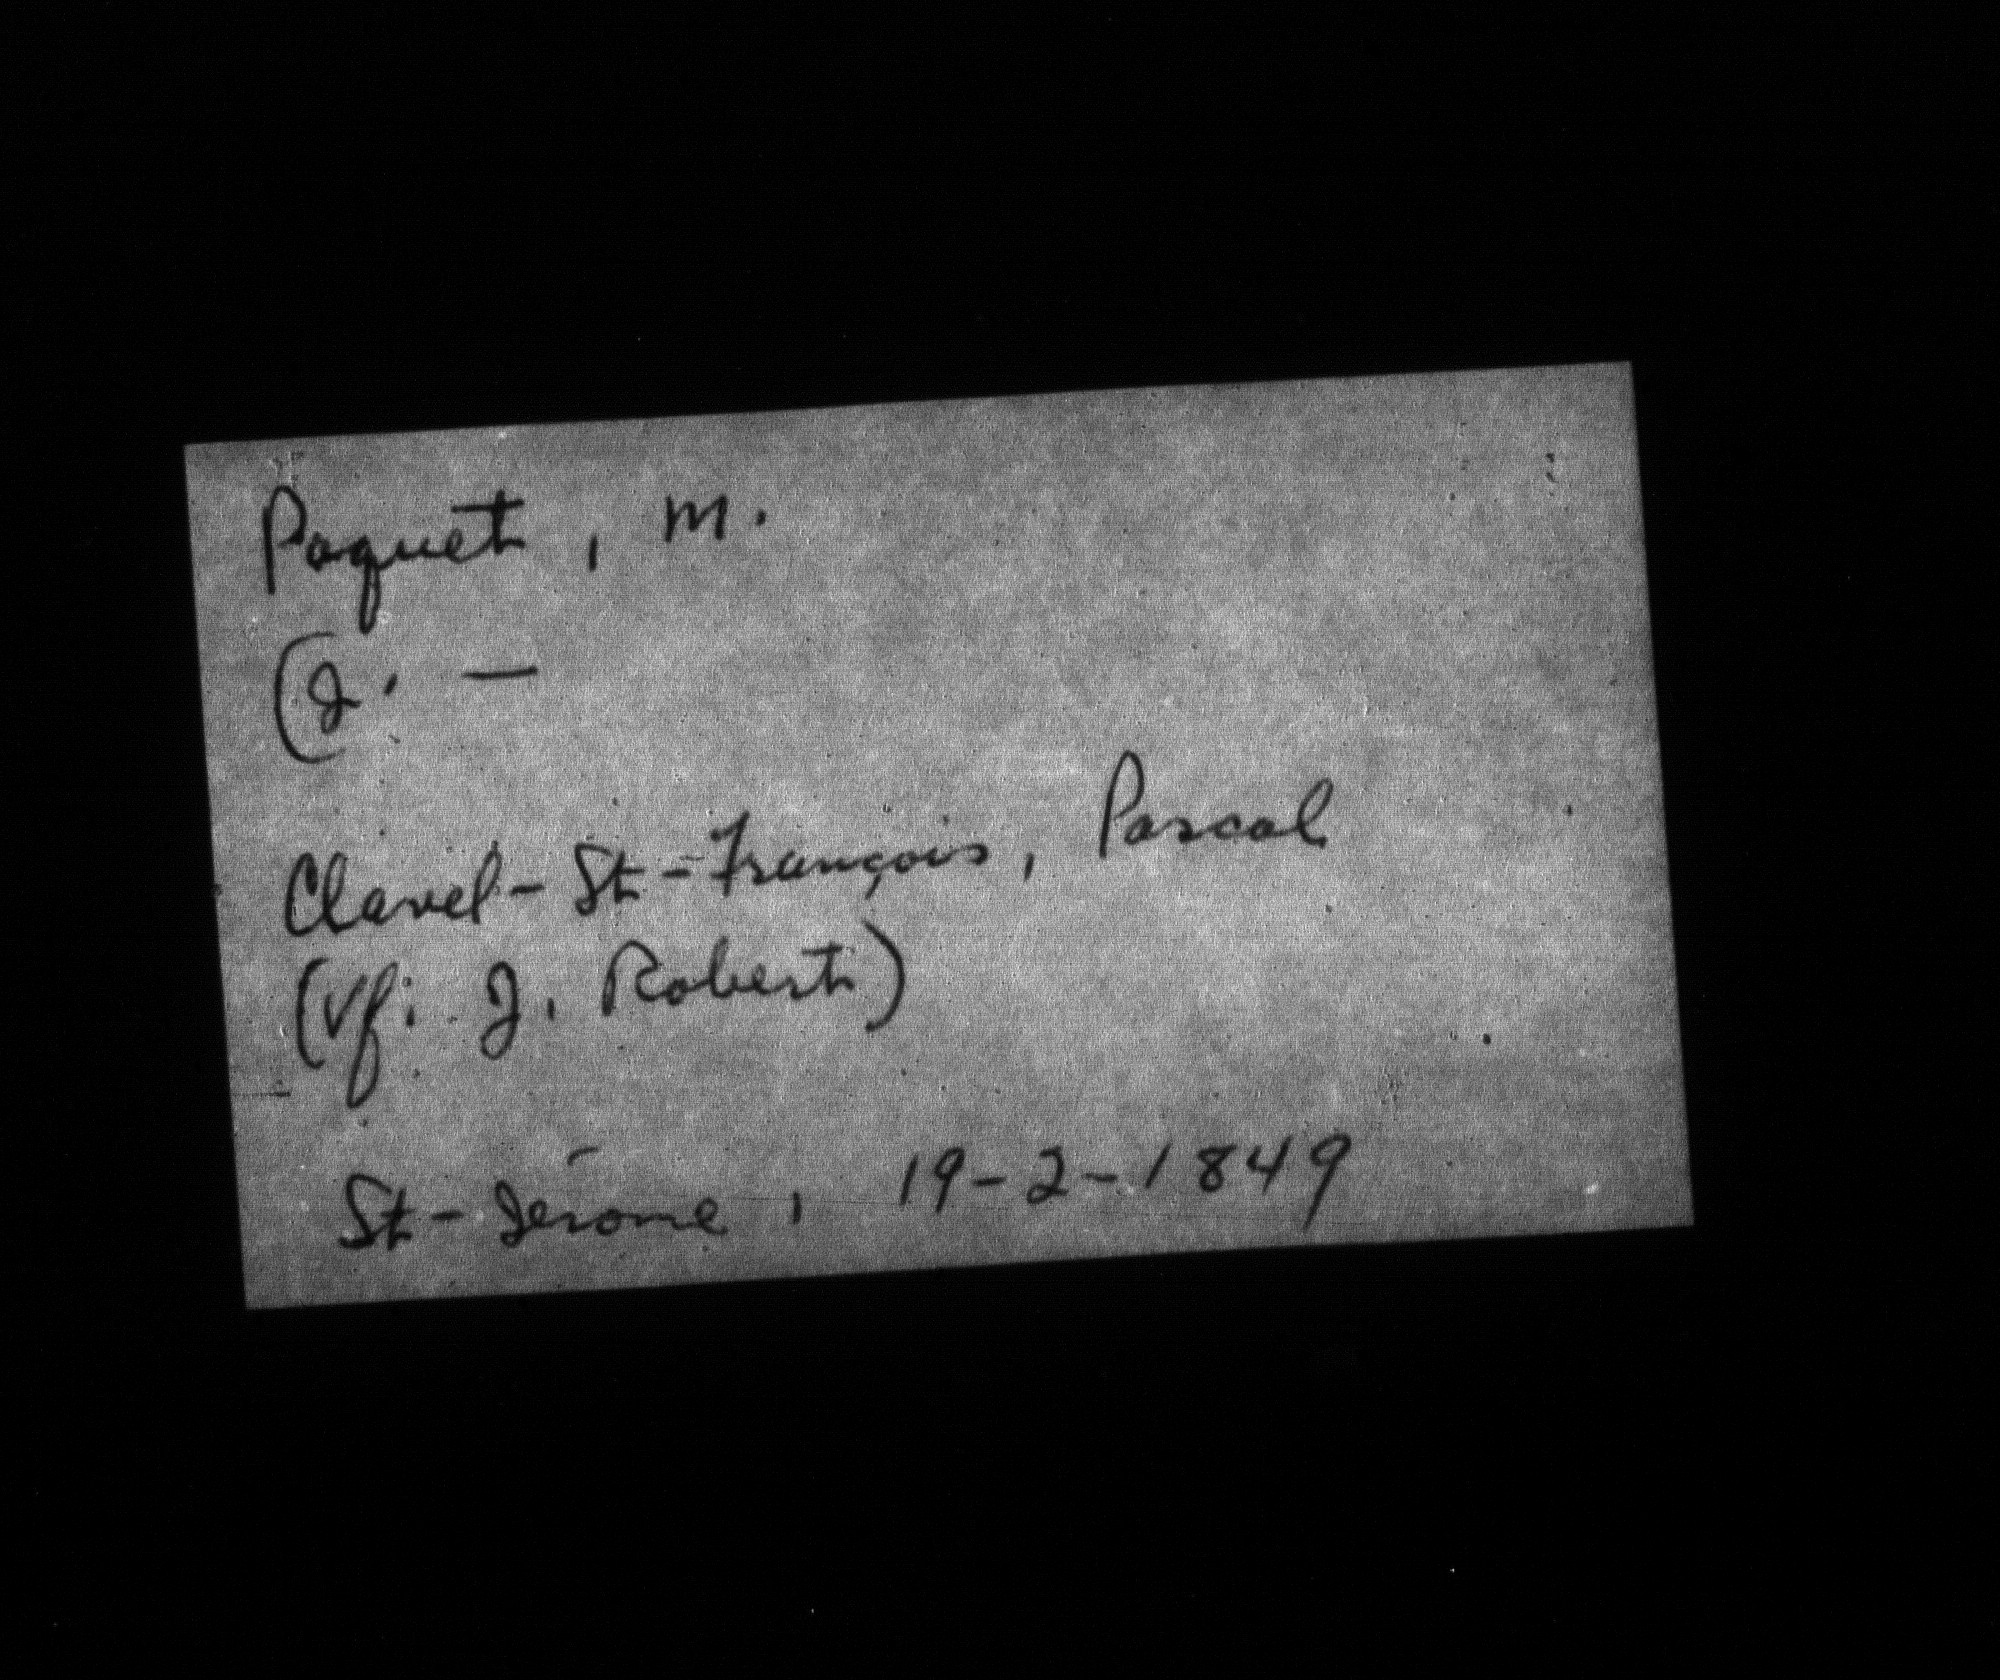 Paquet, M.
(J. —
Clavel-St-François, Pascal
(Vf: J. Robert)
St-Jérome, 19-2-1849